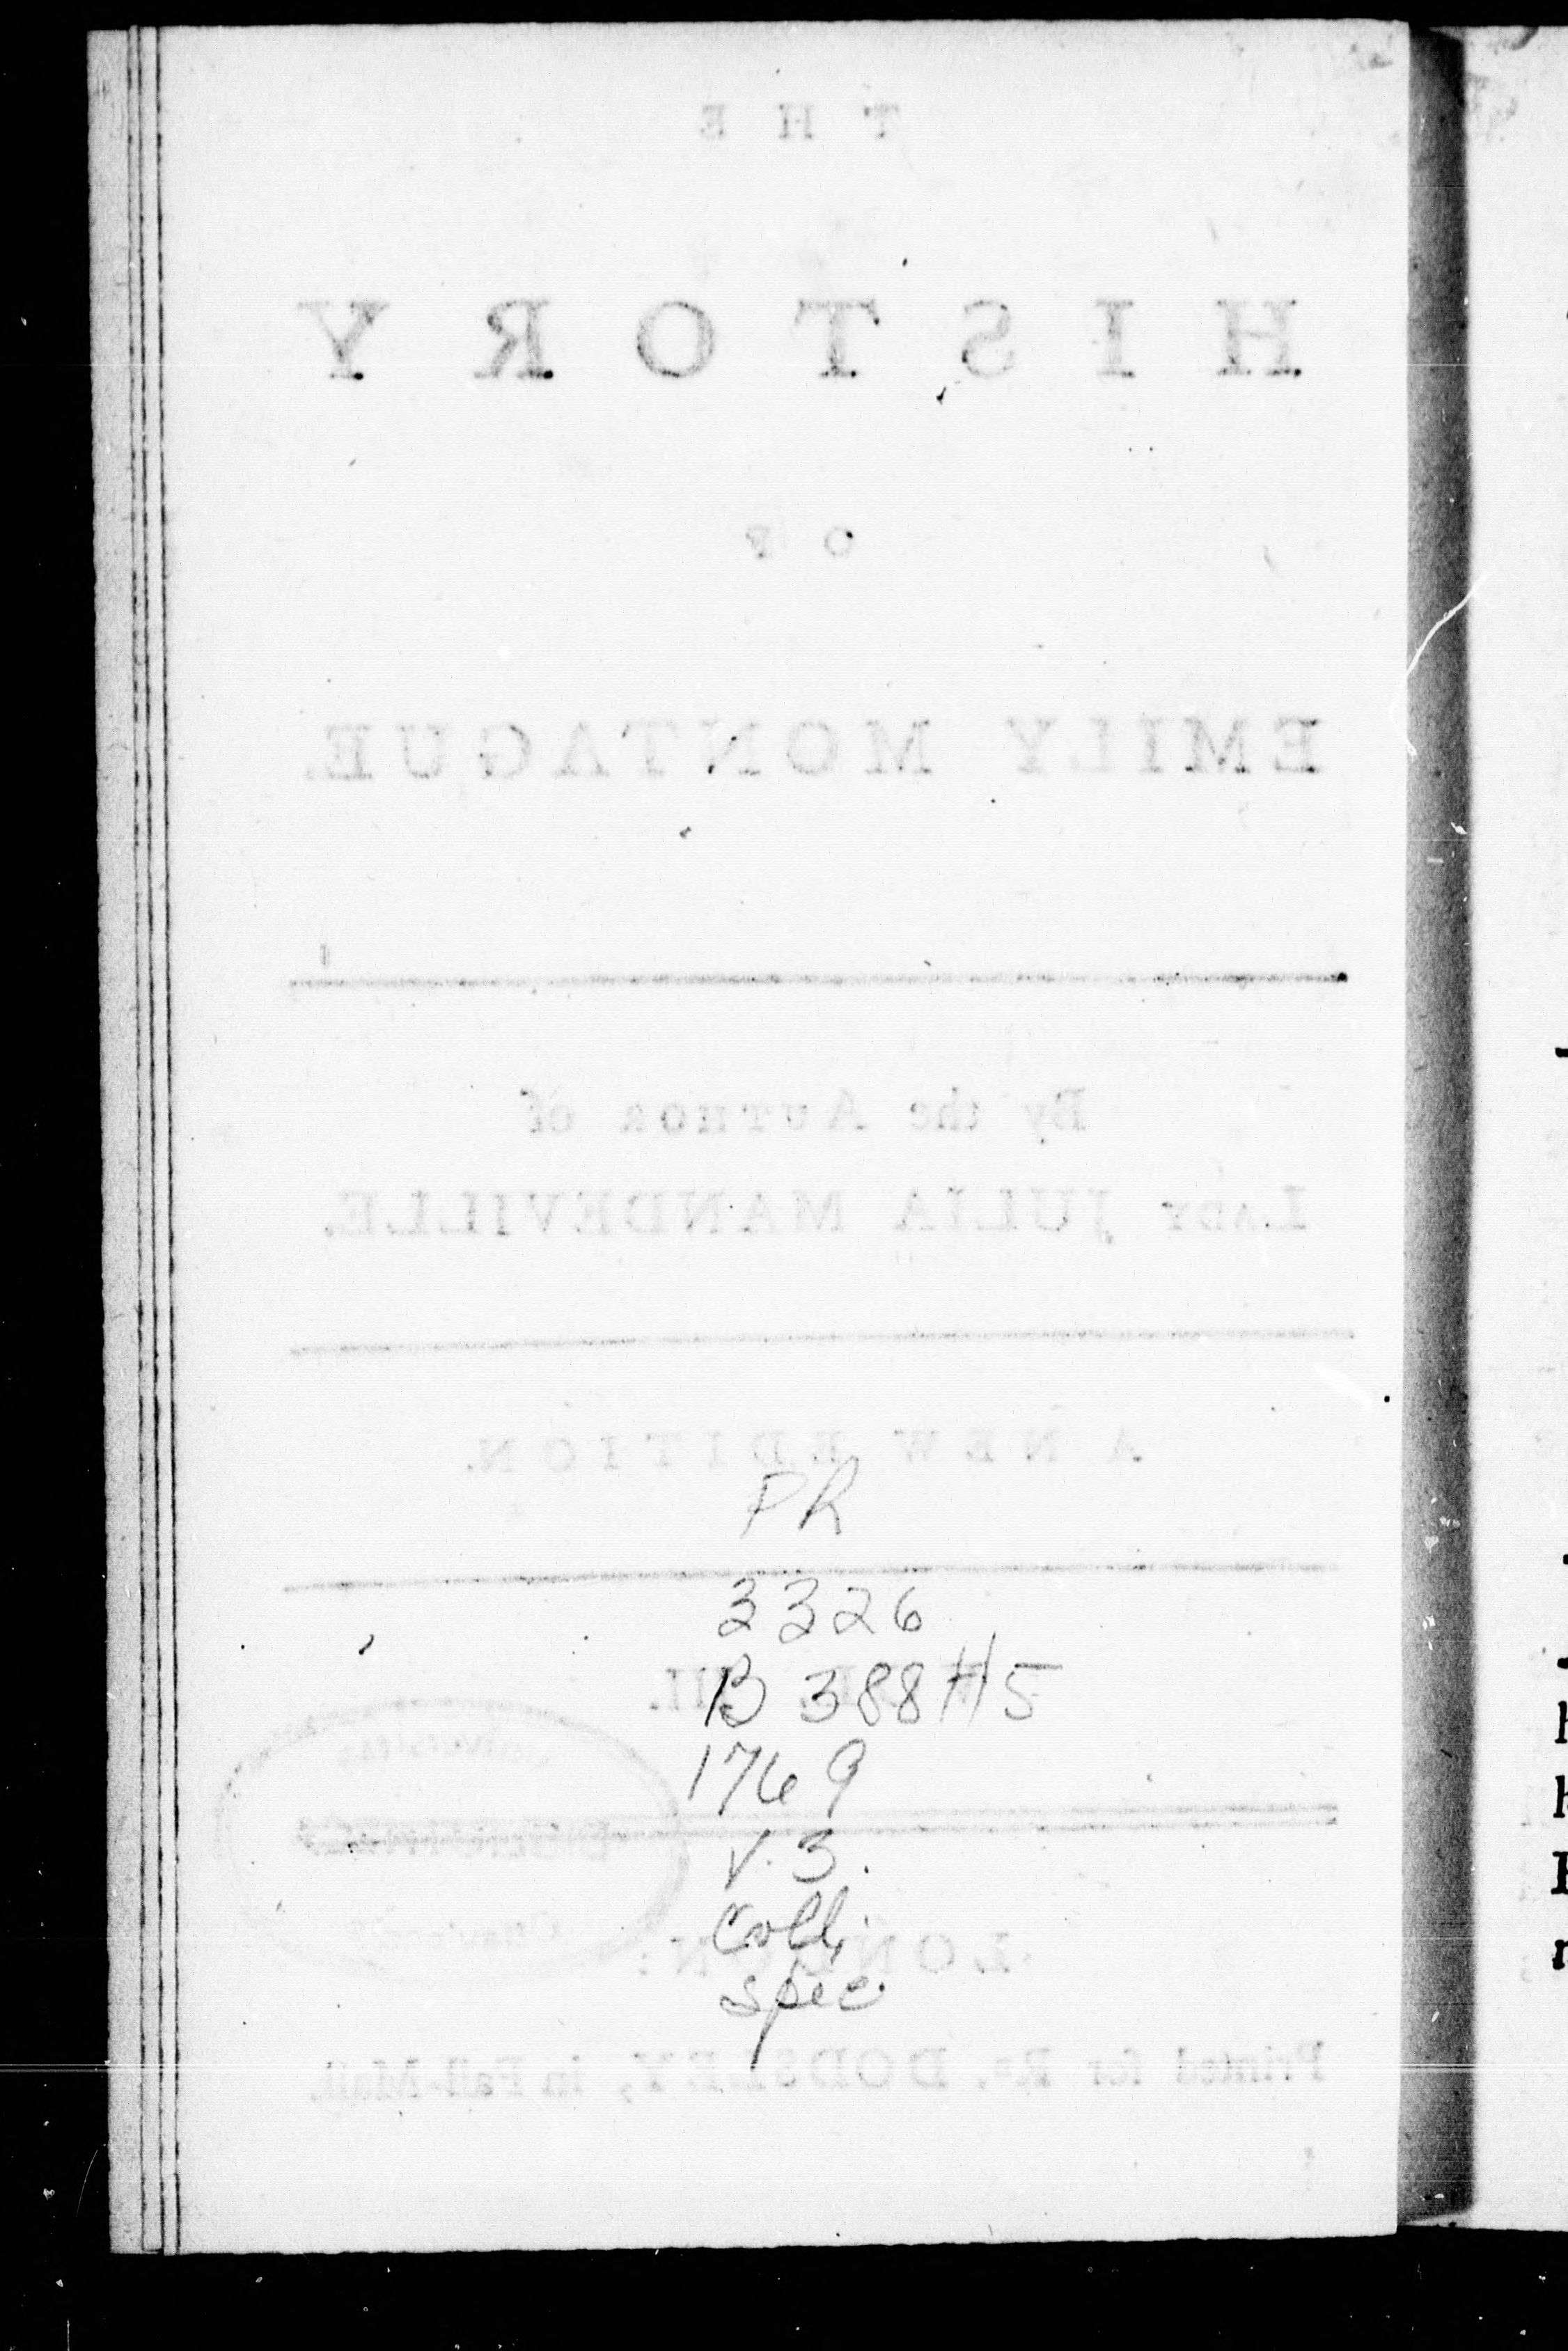 THE
HISTORY
OF
EMILY MONTAGUE.
By the AUTHOR of
LADY JULIA MANDEVILLE.
A NEW EDITION.
PR
3326
B 388 H5
1769
V. 3.
Coll.
spec
LONDON:
Printed for R. DODSLEY, in Pall-Mall.